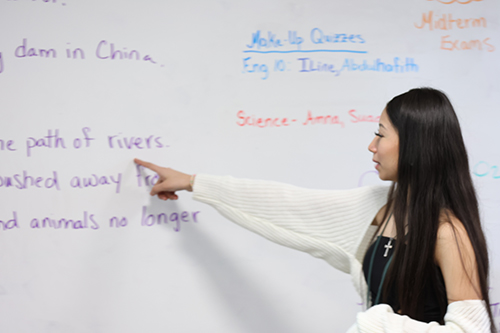 dam in China.
path of rivers.
away
animals no longer
Make-Up Quizzes
Eng 10: ILine, Abdulhafith
Science- Amna,
Midterm
Exams